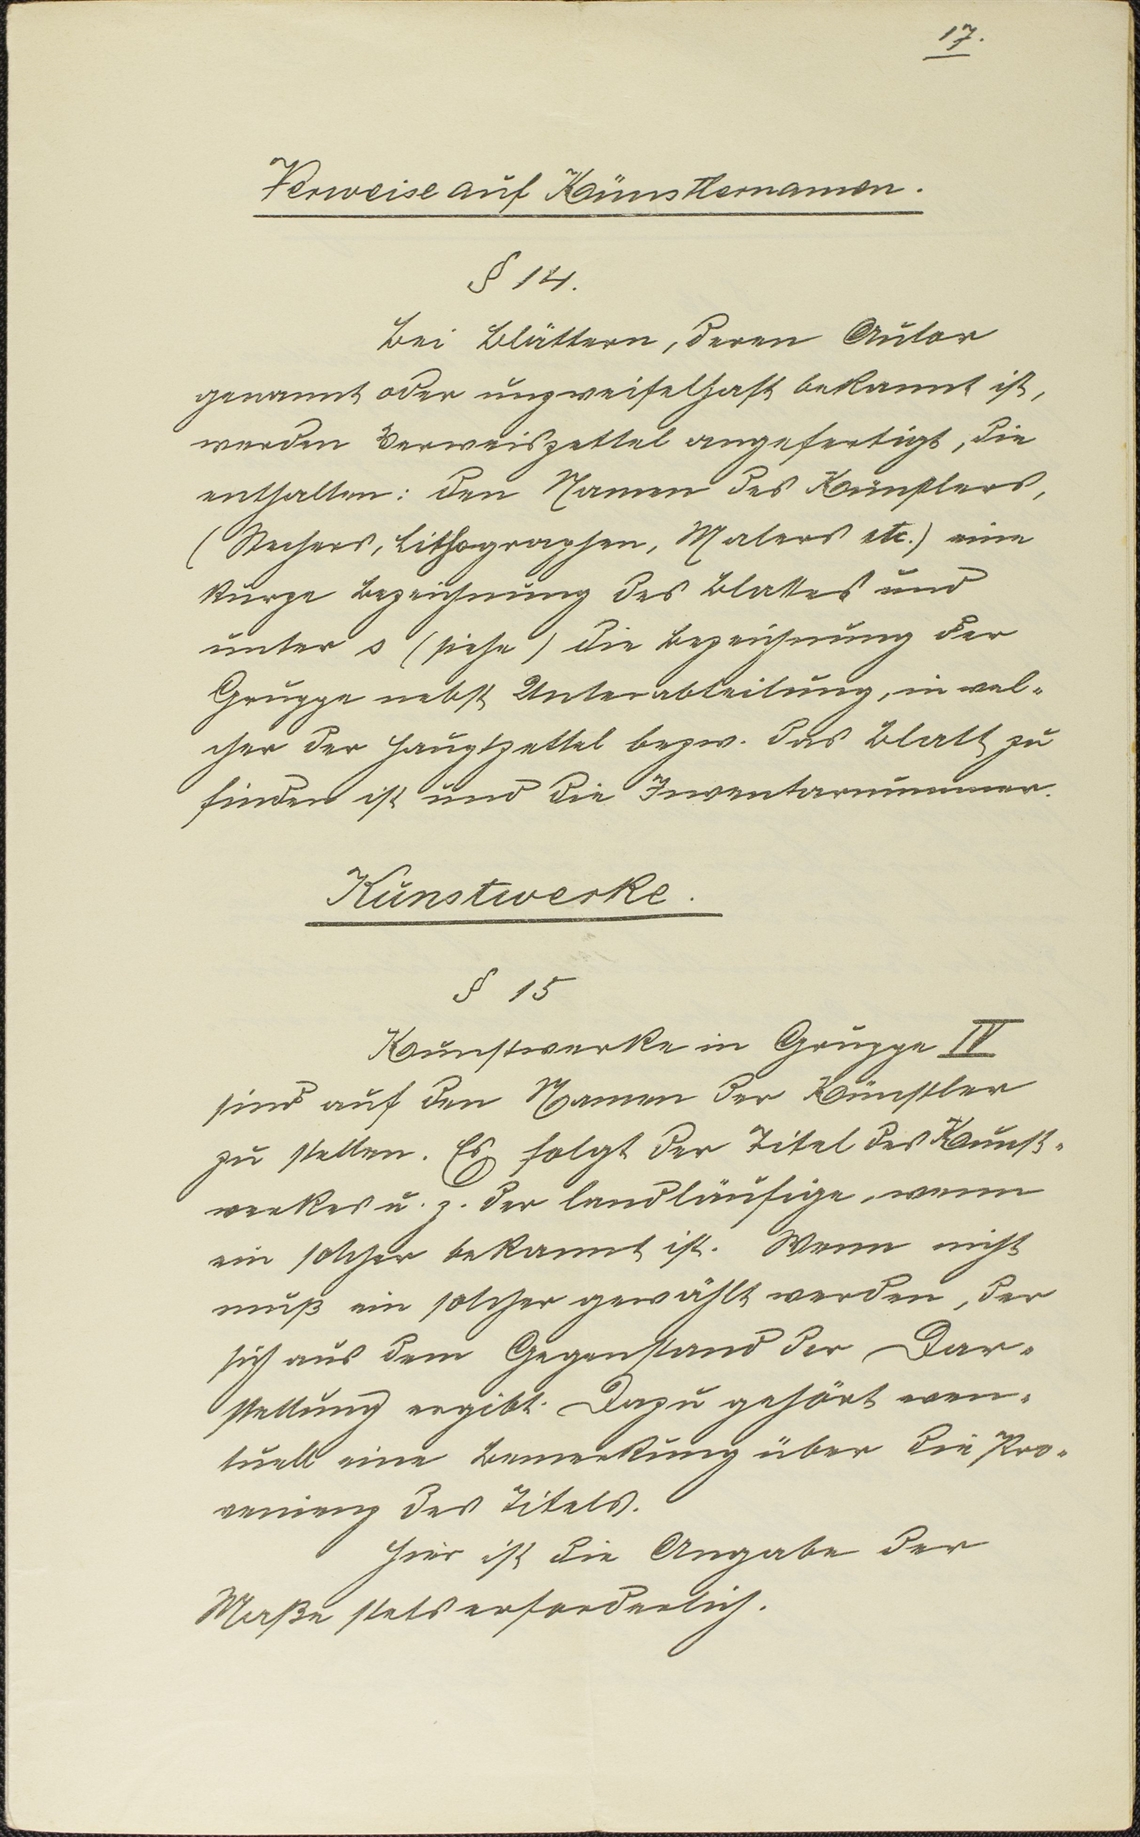 17.
Verweise auf Künstlernamen.
§ 14.
Bei Blättern, deren Autor
genannt oder unzweifelhaft bekannt ist,
werden Verweiszettel angefertigt, die
enthalten: den Namen des Künstlers,
(Stechers, Lithographen, Malers etc.) eine
kurze Bezeichnung des Blattes und
unter s (siehe) die Bezeichnung der
Gruppe nebst Unterabteilung, in wel-
cher der Hauptzettel bezw. das Blatt zu
finden ist und die Inventarnummer.
Kunstwerke.
§ 15
Kunstwerke in Gruppe IV
sind auf den Namen der Künstler
zu stellen. Es folgt der Titel des Kunst-
werkes u. z. der landläufige, wenn
ein solcher bekannt ist. Wenn nicht
muß ein solcher gewählt werden, der
sich aus dem Gegenstand der Dar-
stellung ergibt. Dazu gehört even-
tuell eine Bemerkung über die Pro-
venienz des Titels.
Hier ist die Angabe der
Maße stets erforderlich.